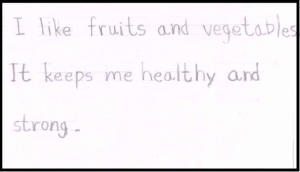 I like fruits and vegetables
It keeps me healthy and
strong.